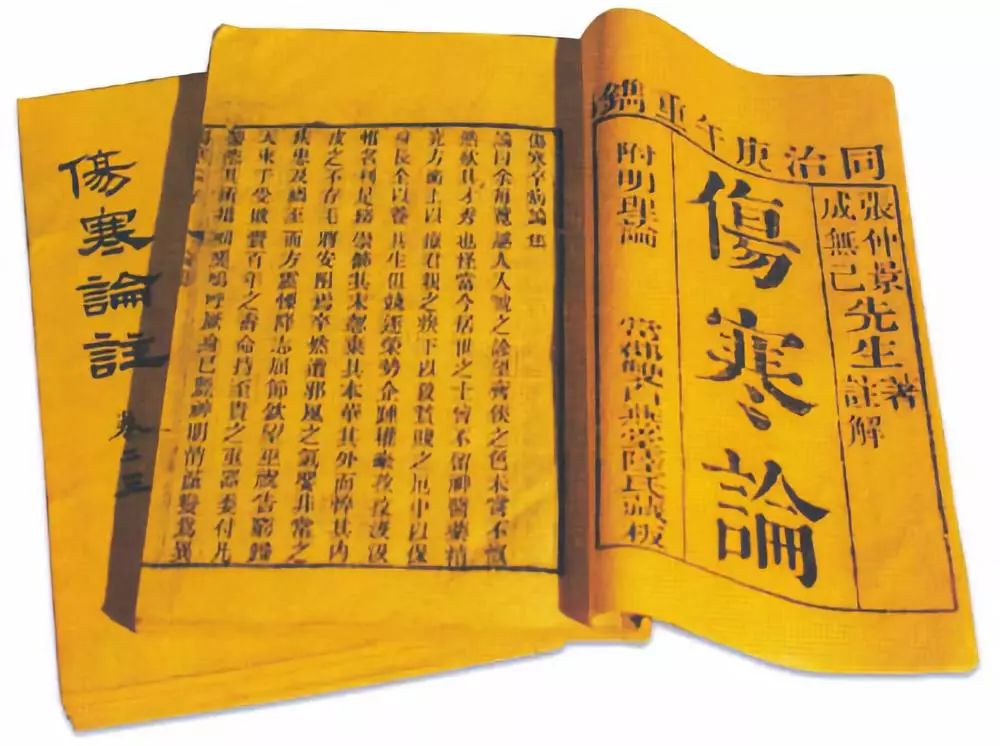 同治庚午重鐫
張仲景先生著
成無己先生註解
傷寒論
附明理論
常郡雙白燕堂陸氏藏板
傷寒卒病論集
論曰余每覽越人入虢之診望齊侯之色未嘗不慨
然歎其才秀也怪當今居世之士曾不留神醫藥精
究方術上以療君親之疾下以救貧賤之厄中以保
身長全以養其生但競逐榮勢企踵權豪孜孜汲汲
惟名利是務崇飾其末忽棄其本華其外而悴其內
皮之不存毛將安附焉卒然遭邪風之氣嬰非常之
疾患及禍至而方震慄降志屈節欽望巫祝告窮歸
天束手受敗賫百年之壽命持至貴之重器委付凡
醫恣其所措咄嗟嗚呼厥身已斃神明消滅變為異
傷寒論註
卷二三